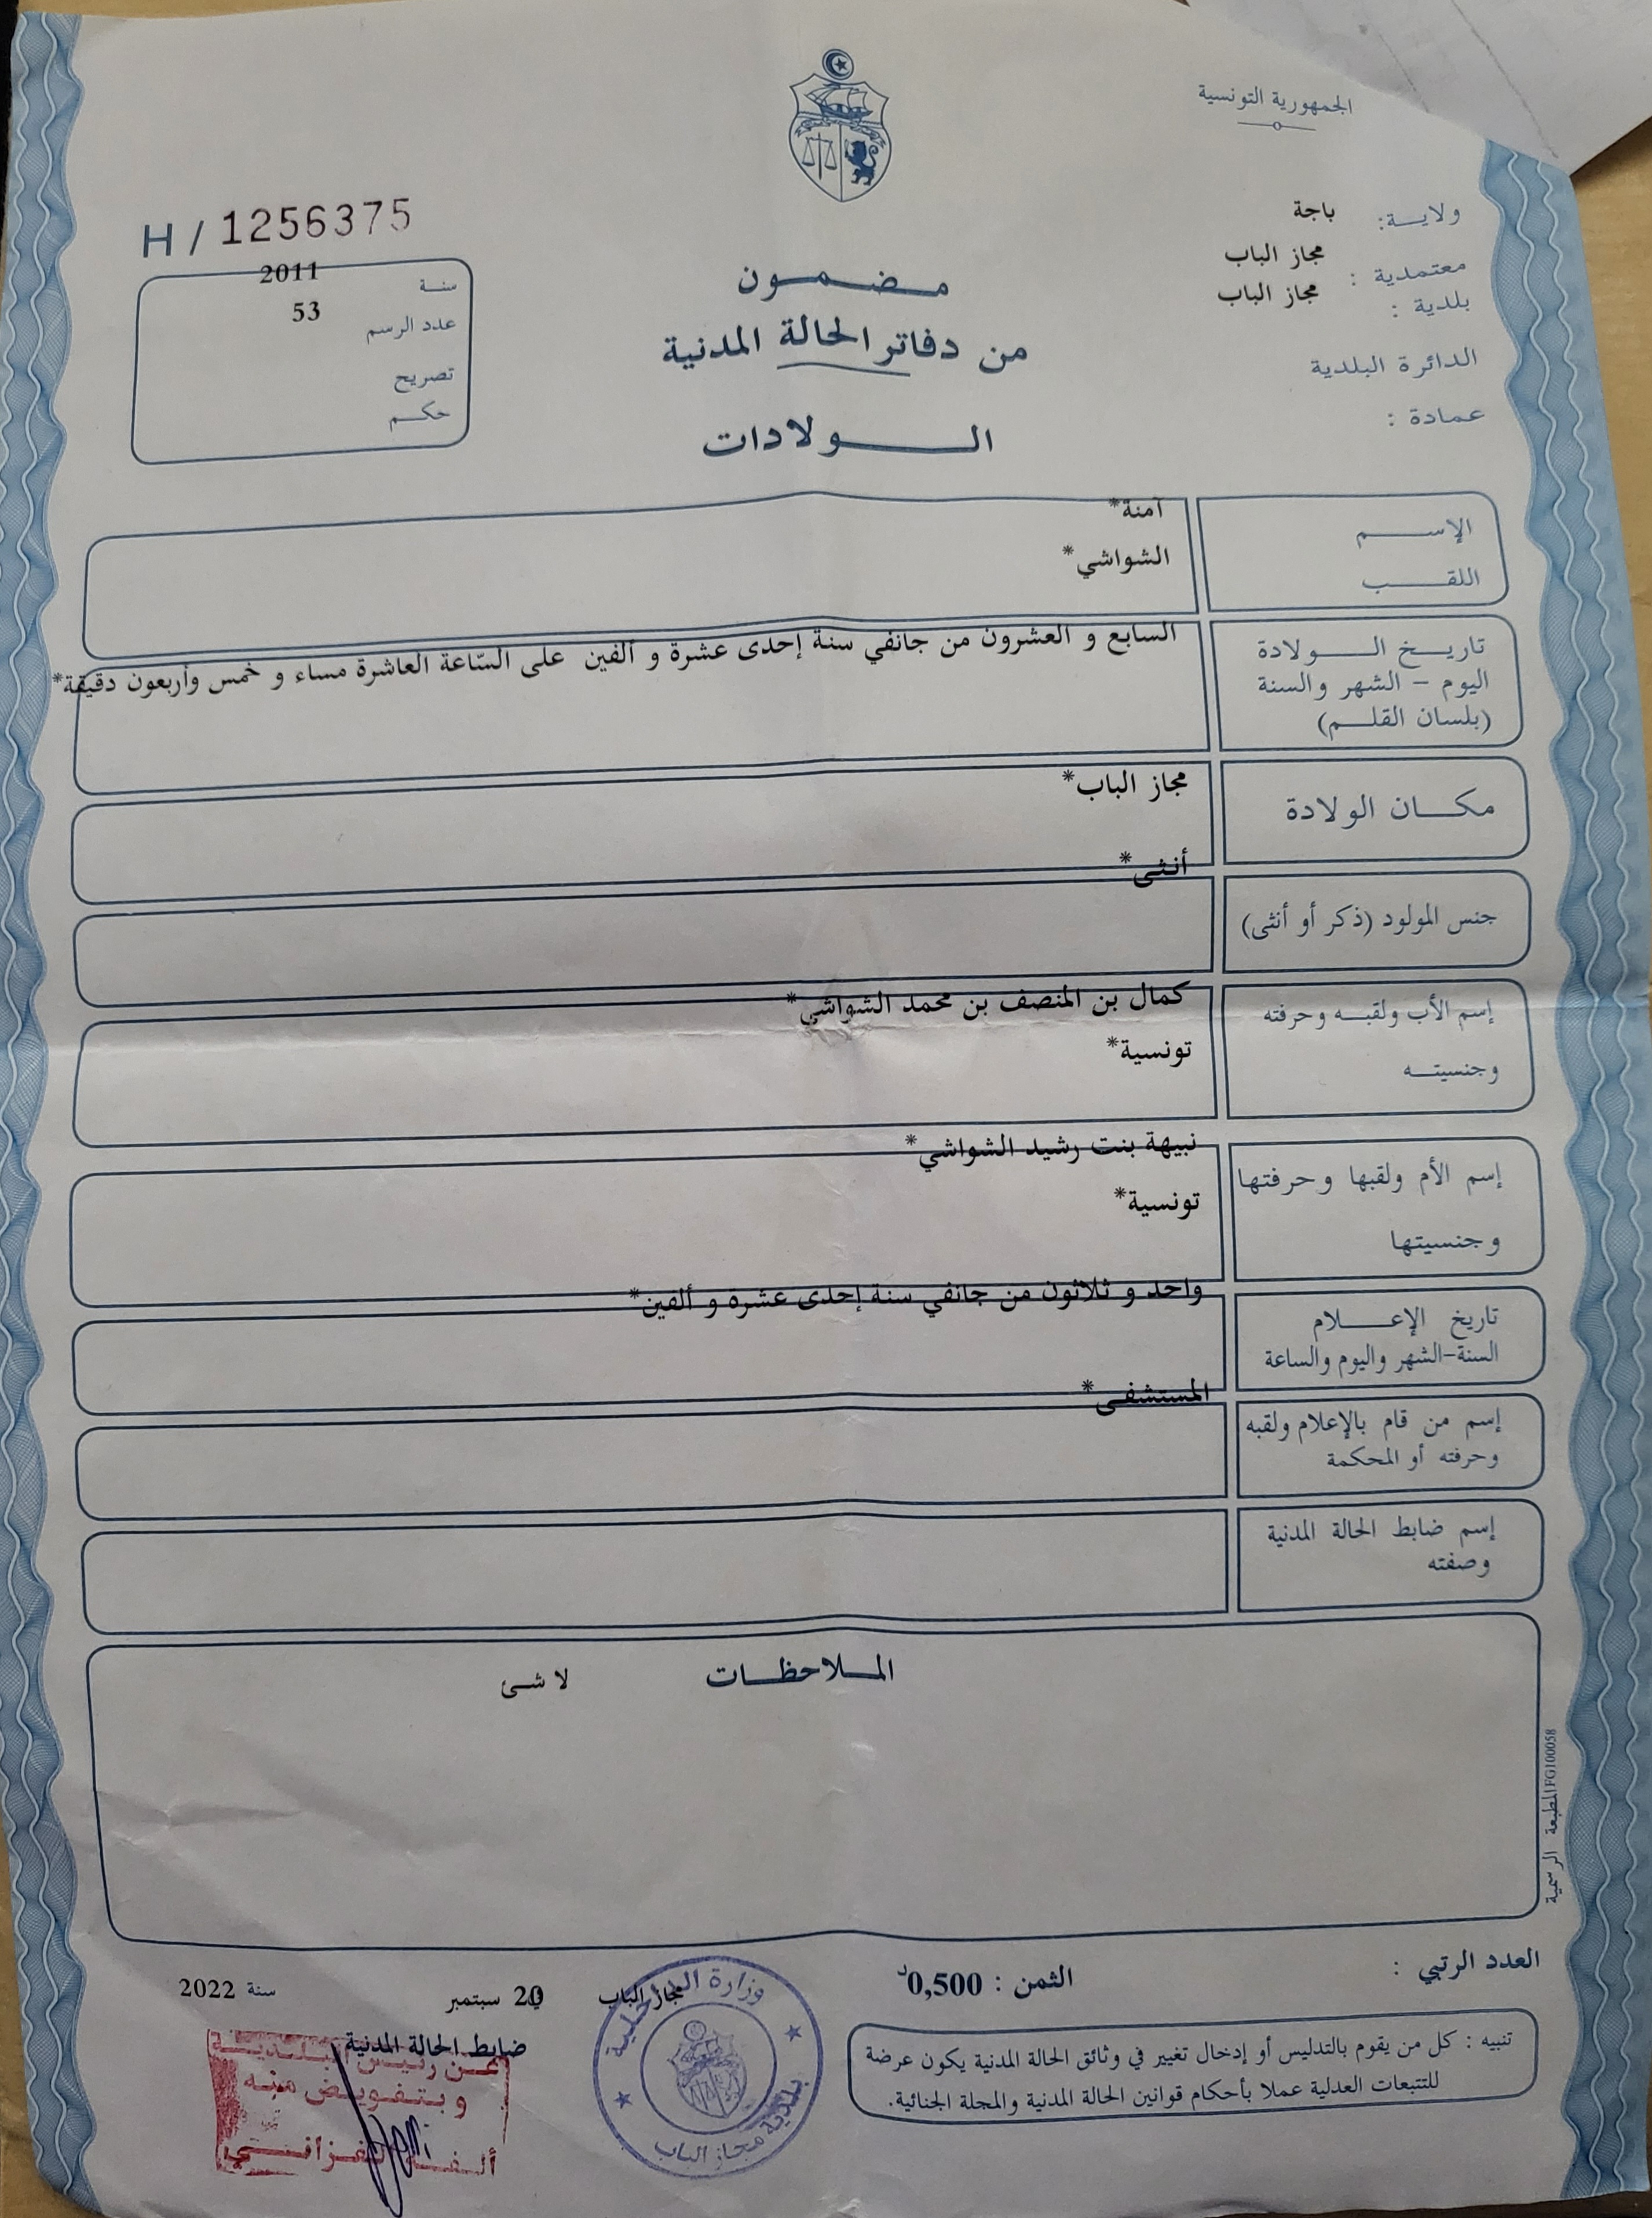 الجمهورية التونسية
ولايـــة: باجة
معتمدية : مجاز الباب
بلدية : مجاز الباب
الدائرة البلدية
عمادة :
مـضـمـون
من دفاتر الحالة المدنية
الــولادات
H / 1256375
سنـة 2011
عدد الرسم 53
تصريح
حكـم
الإســـم آمنة*
اللقـــب الشواشي*
تاريـــخ الـــولادة
اليوم – الشهر والسنة
(بلسان القلـــم)
السابع و العشرون من جانفي سنة إحدى عشرة و ألفين على السّاعة العاشرة مساء و خمس وأربعون دقيقة*
مكـــان الولادة مجاز الباب*
جنس المولود (ذكر أو أنثى) أنثى*
إسم الأب ولقبـــه وحرفته كمال بن المنصف بن محمد الشواشي*
وجنسيتـــه تونسية*
إسم الأم ولقبها وحرفتها نبيهة بنت رشيد الشواشي*
وجنسيتها تونسية*
تاريخ الإعـــلام واحد و ثلاثون من جانفي سنة إحدى عشرة و ألفين*
السنة-الشهر واليوم والساعة
إسم من قام بالإعلام ولقبه المستشفى*
وحرفته أو المحكمة
إسم ضابط الحالة المدنية
وصفته
المـــلاحظـــات
لا شئ
المطبعة الرسمية FG100058
العدد الرتبي :
الثمن : 0,500د
تنبيه : كل من يقوم بالتدليس أو إدخال تغيير في وثائق الحالة المدنية يكون عرضة
للتتبعات العدلية عملا بأحكام قوانين الحالة المدنية والمجلة الجنائية.
مجاز الباب 20 سبتمبر سنة 2022
ضابط الحالة المدنية
وزارة الداخلية
بلدية مجاز الباب
عن رئيس البلدية
وبتفويض منه